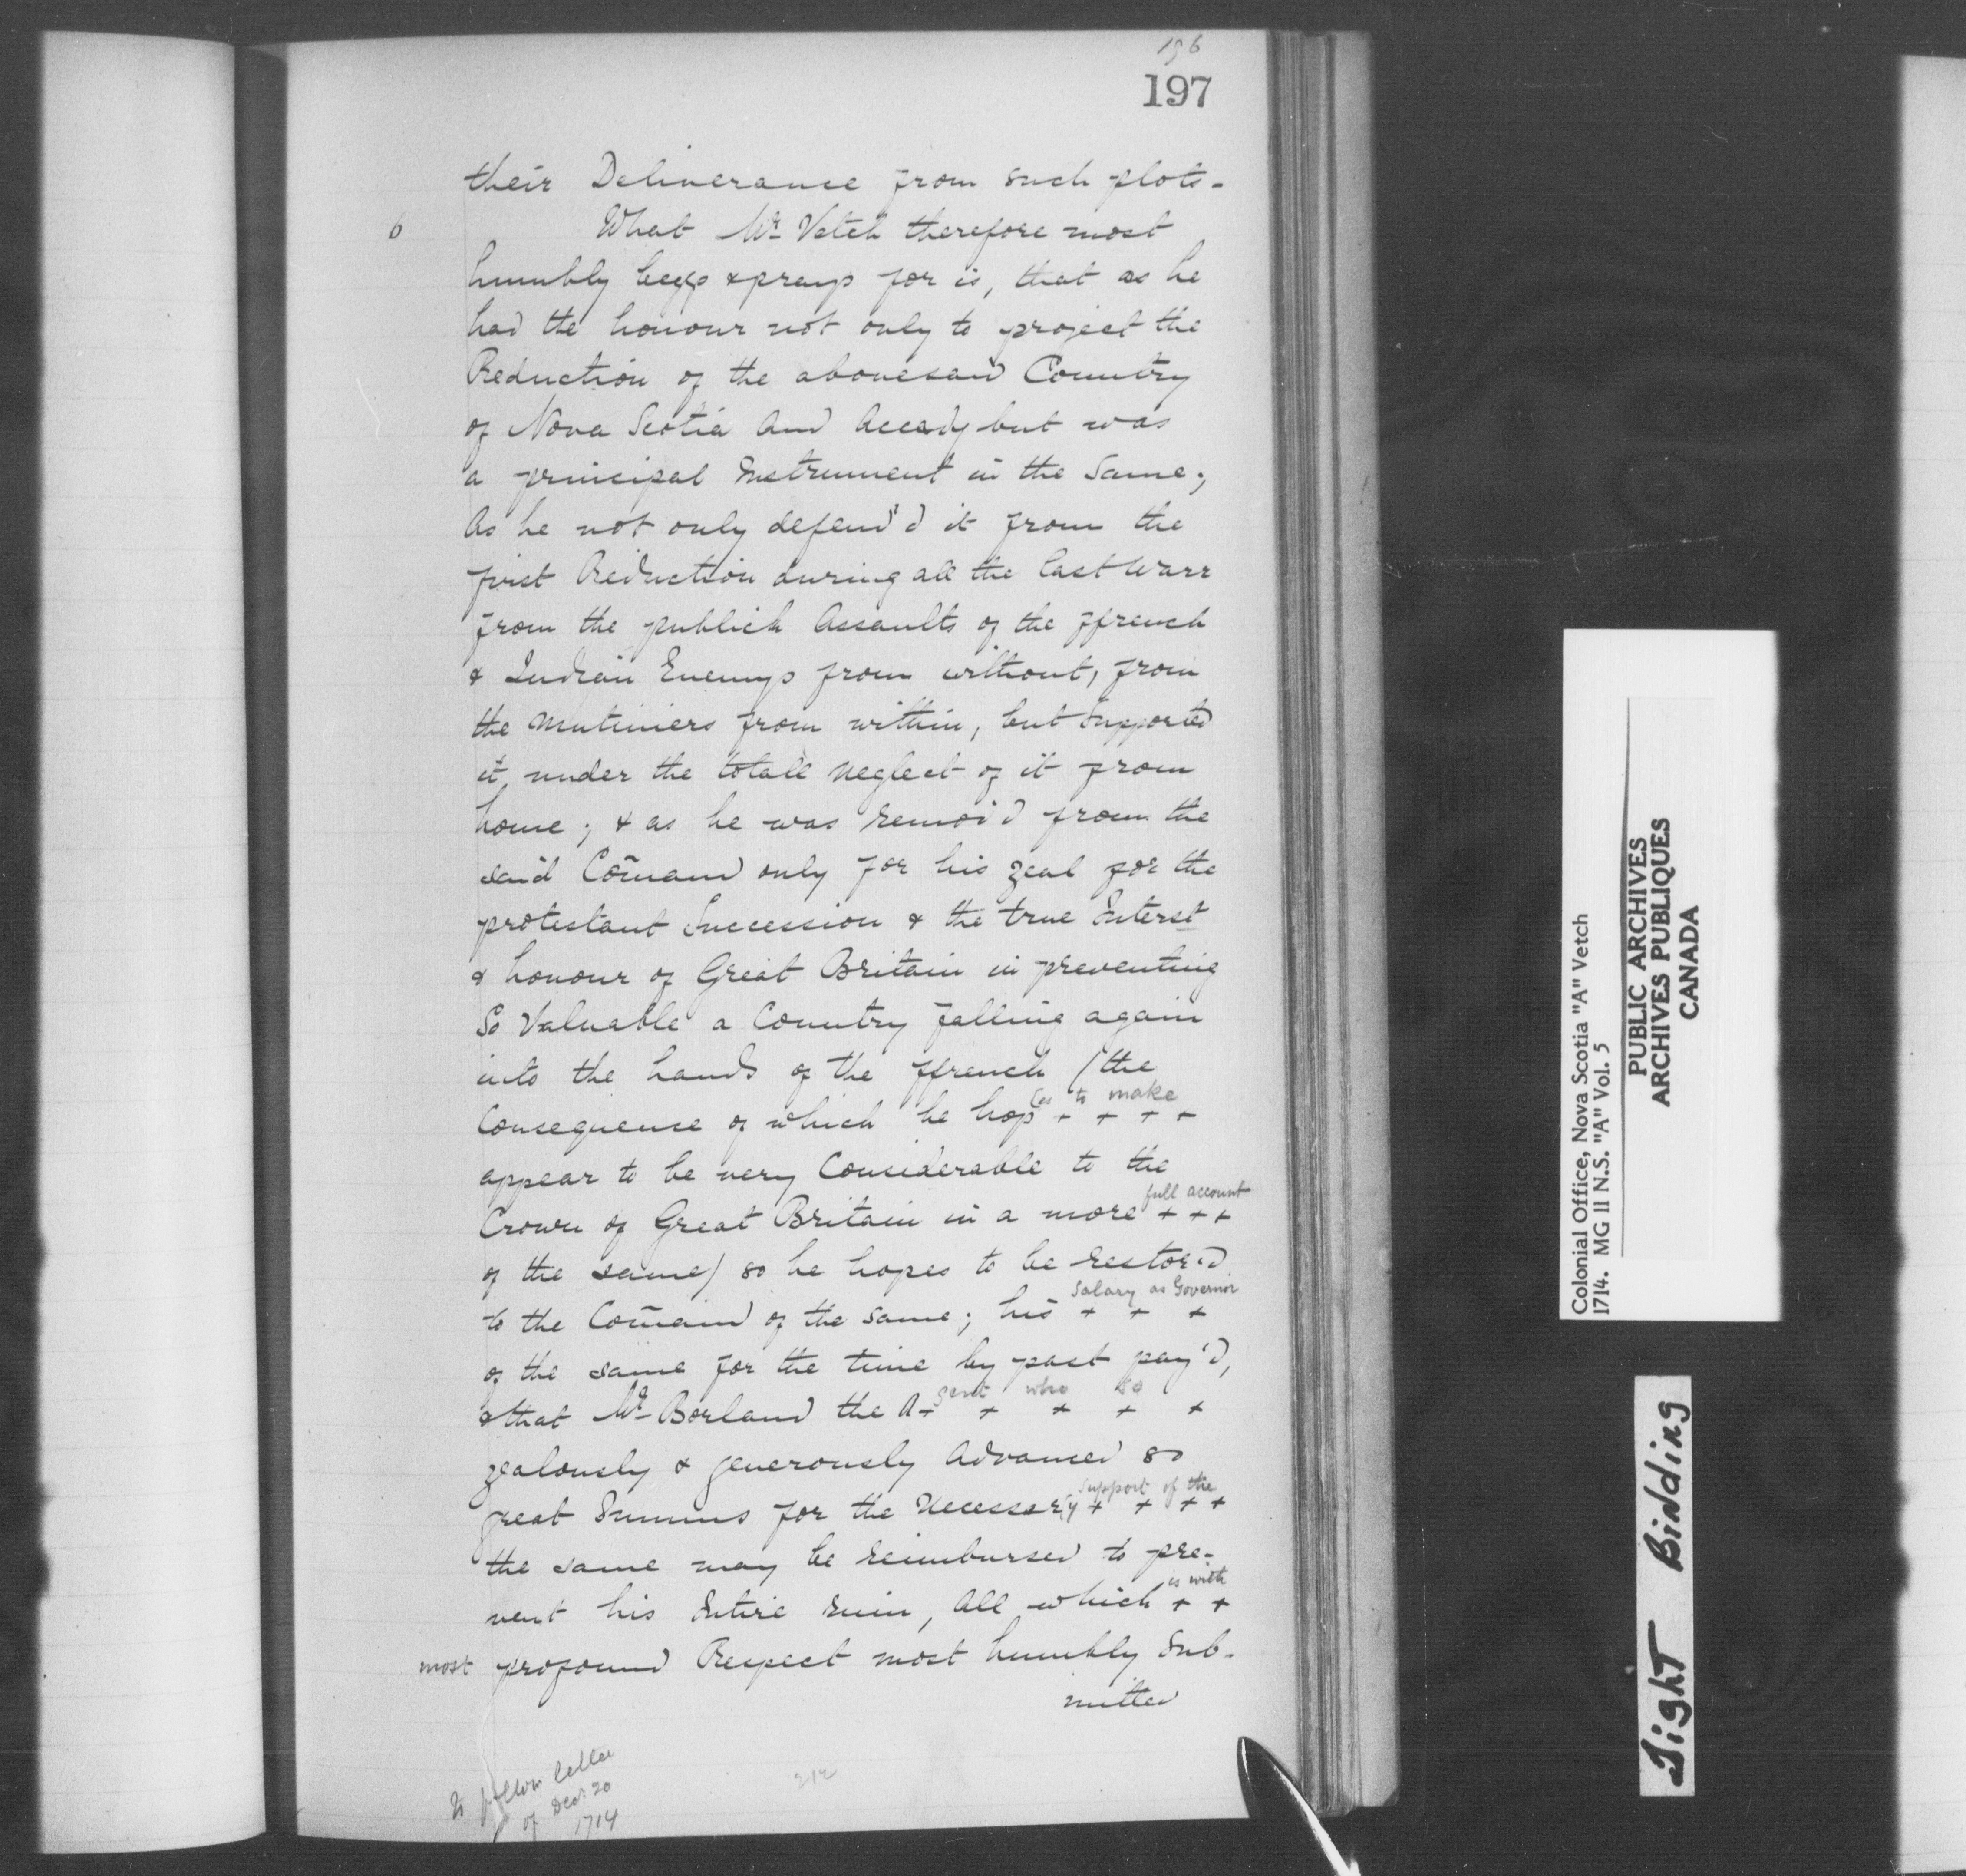 196
197
their Deliverance from such plots.
6 What Mr Vetch therefore most
humbly beggs & prays for is, that as he
had the honour not only to project the
Reduction of the abovesaid Country
of Nova Scotia And Accady but was
a principal Instrument in the Same;
As he not only defend'd it from the
first Reduction during all the last warr
from the publick Assaults of the ffrench
& Indian Enemys from without, from
the Mutiniers from within, but Supported
it under the totall Neglect of it from
home; & as he was remov'd from the
said Com̄and only for his zeal for the
protestant Succession & the true Interst
& honour of Great Britain in preventing
So Valuable a Country falling again
into the hands of the ffrench (the
Consequence of which he hop(es to make + + + +
appear to be very Considerable to the
Crown of Great Britain in a more full account + + +
of the same) so he hopes to be restor'd
to the Com̄and of the same; his Salary as Governor + + +
of the same for the time by past pay'd,
& that Mr Borland the Agent who so + + + + +
zealously & generously Advanced so
great Summs for the Necessary support of the + + + +
the same may be reimbursed to pre-
vent his Intire ruin, All which is with + +
most profound Respect most humbly Sub-
mitted
to follow letter
of Decr 20
1714
212
Colonial Office, Nova Scotia "A" Vetch
1714. MG 11 N.S. "A" Vol. 5
PUBLIC ARCHIVES
ARCHIVES PUBLIQUES
CANADA
Tight Bidding